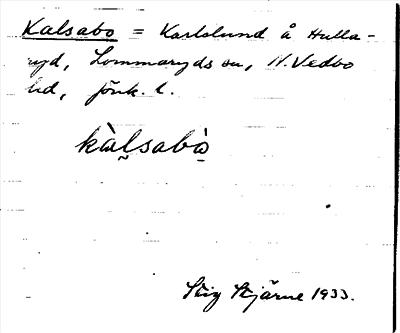 Kalsabo = Karlslund å Hulla-
ryd, Lommaryds sn, N. Vedbo
hd, Jönk. l.
kàlsabò
Stig Stjärne 1933.